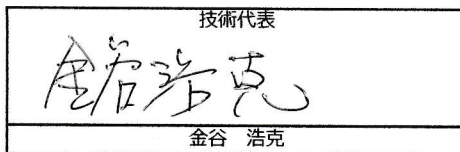 技術代表
金谷浩克
金谷 浩克